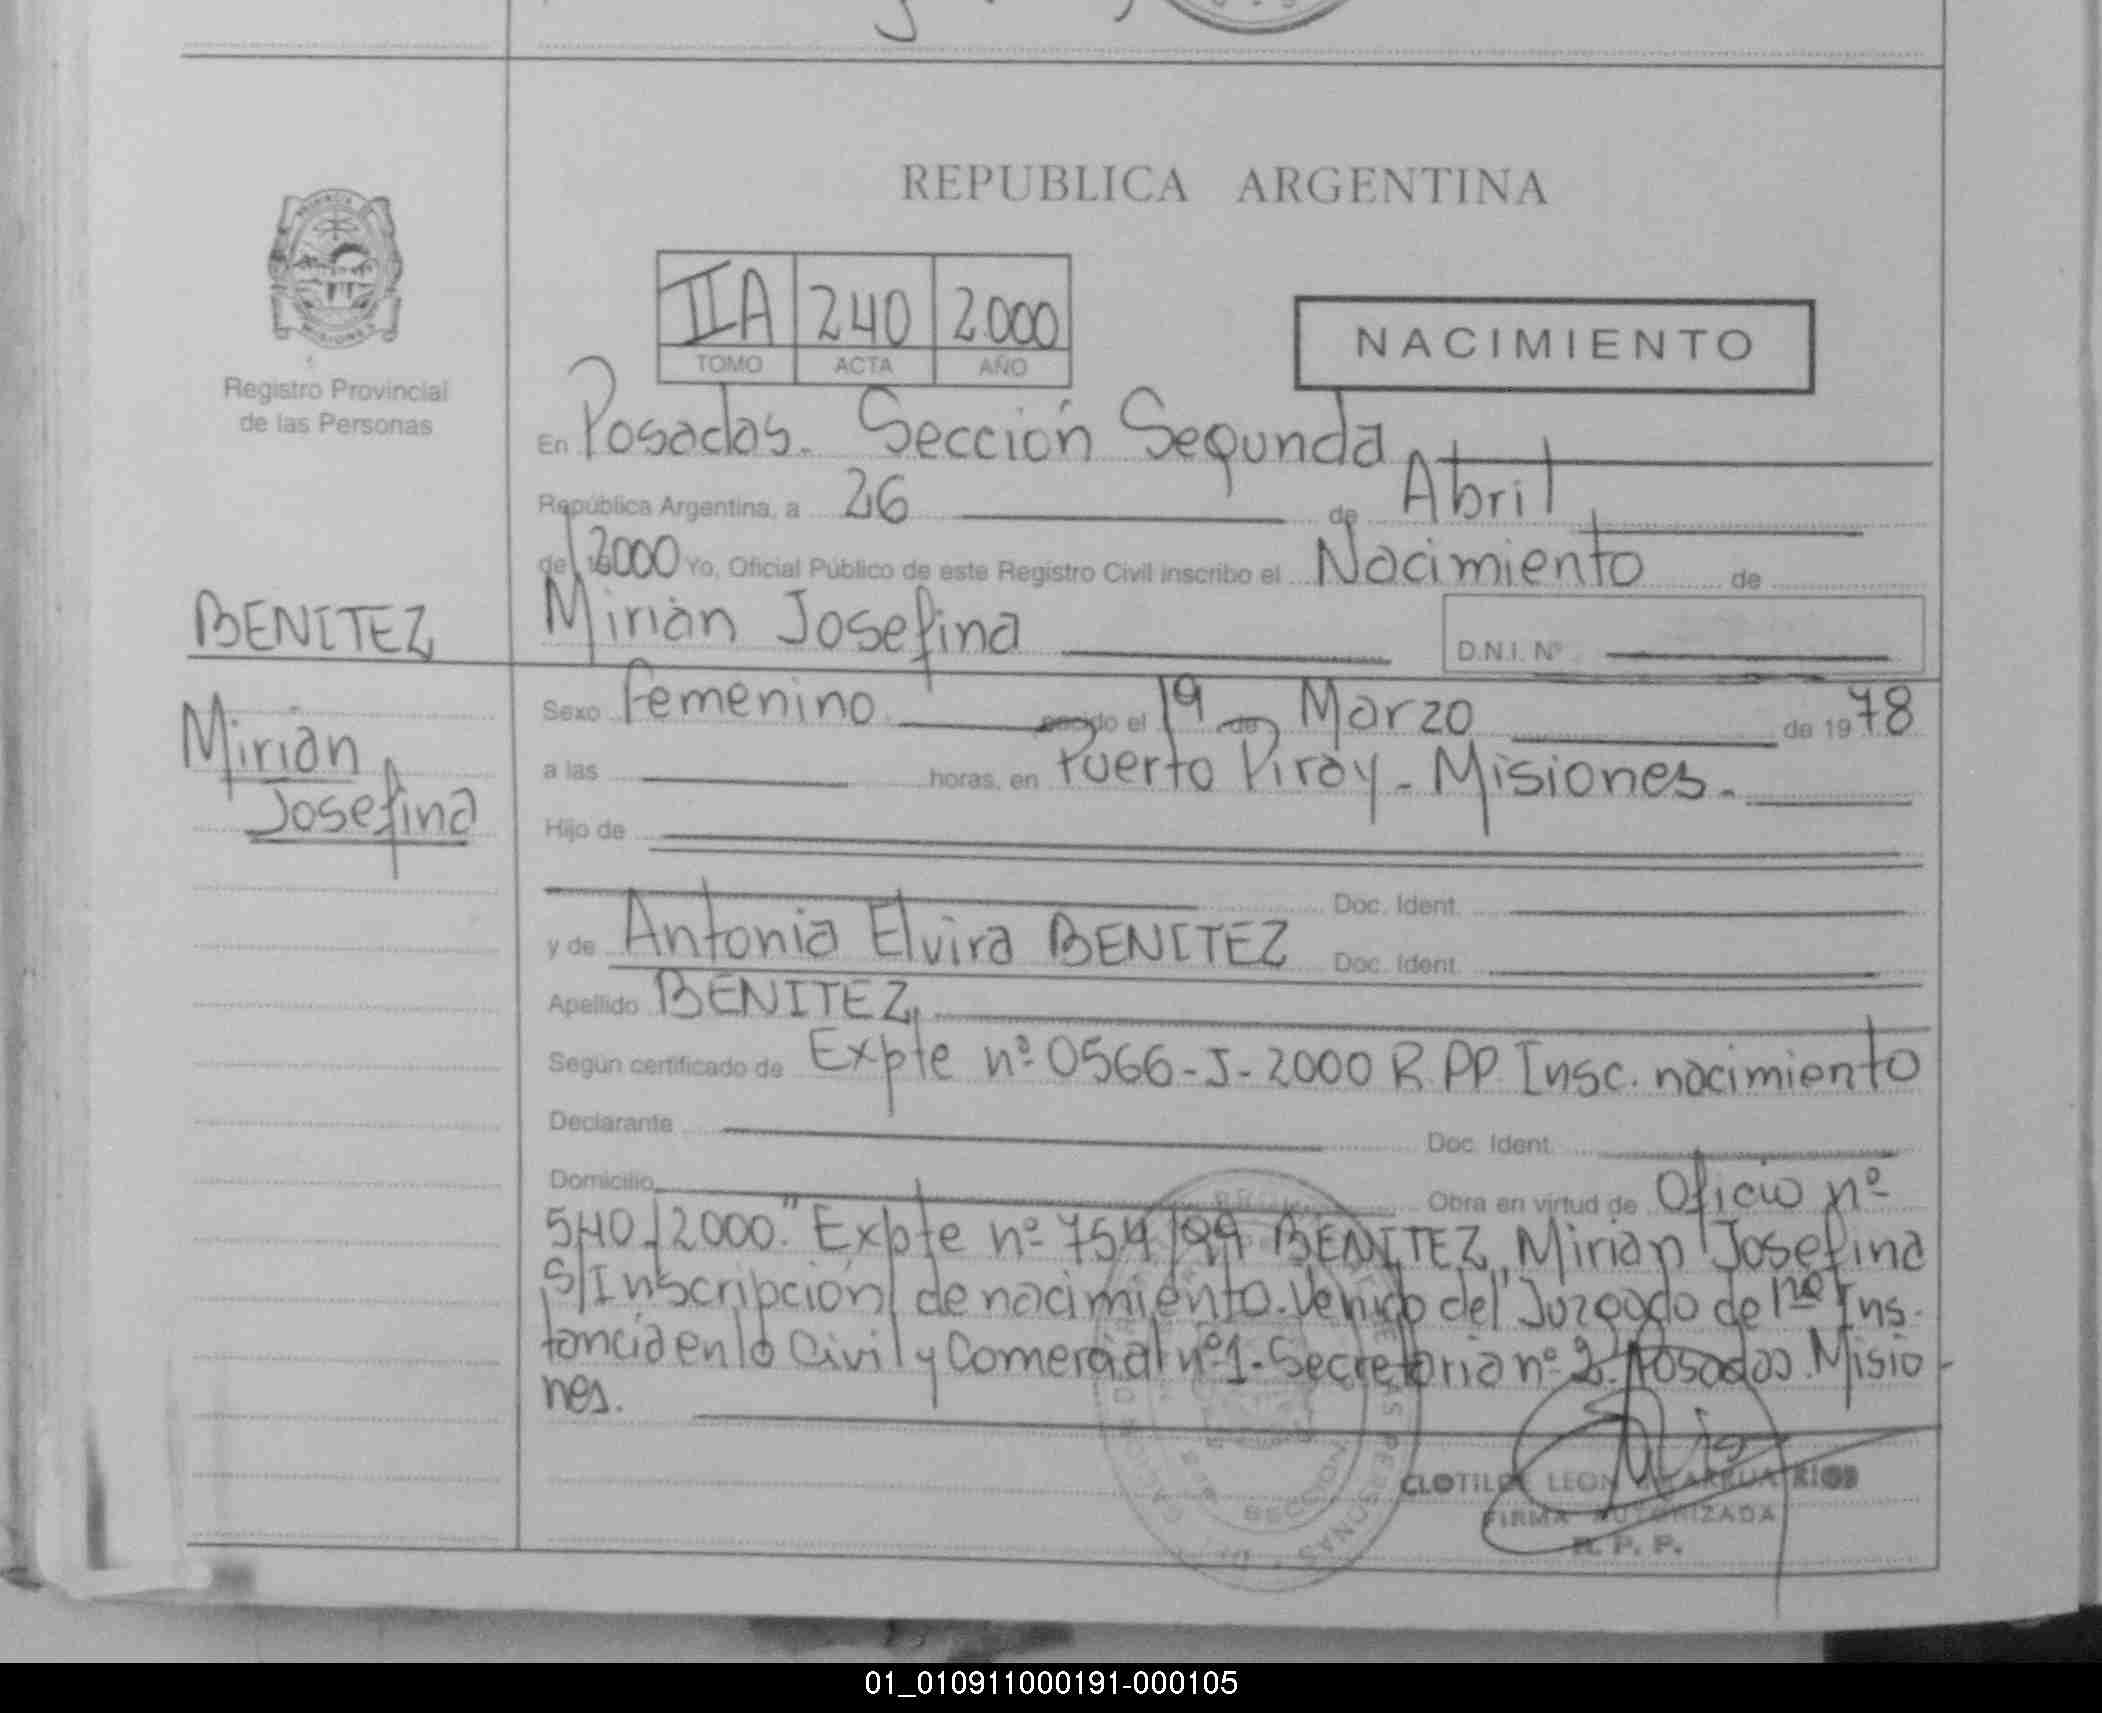 REPUBLICA ARGENTINA
IIA 240 2000
TOMO ACTA AÑO
NACIMIENTO
Registro Provincial
de las Personas
En Posadas. Sección Segunda
República Argentina, a 26 de Abril
de 2000 Yo, Oficial Público de este Registro Civil inscribo el Nacimiento de
BENITEZ
Mirian Josefina D.N.I. Nº
Mirian
Josefina
Sexo femenino nacido el 19 de Marzo de 1978
a las horas, en Puerto Piray - Misiones.
Hijo de
Doc. Ident.
y de Antonia Elvira BENITEZ Doc. Ident.
Apellido BENITEZ
Según certificado de Expte nº 0566-J-2000 R.PP. Insc. nacimiento
Declarante Doc. Ident.
Domicilio Obra en virtud de Oficio nº
540/2000." Expte nº 754/99 BENITEZ, Mirian Josefina
S/Inscripción de nacimiento. Venido del Juzgado de 1ra Ins-
tancia en lo Civil y Comercial nº 1- Secretaria nº 2. Posadas. Misio-
nes.
CLOTILDE LEON RIOS
FIRMA AUTORIZADA
R. P. P.
01_010911000191-000105